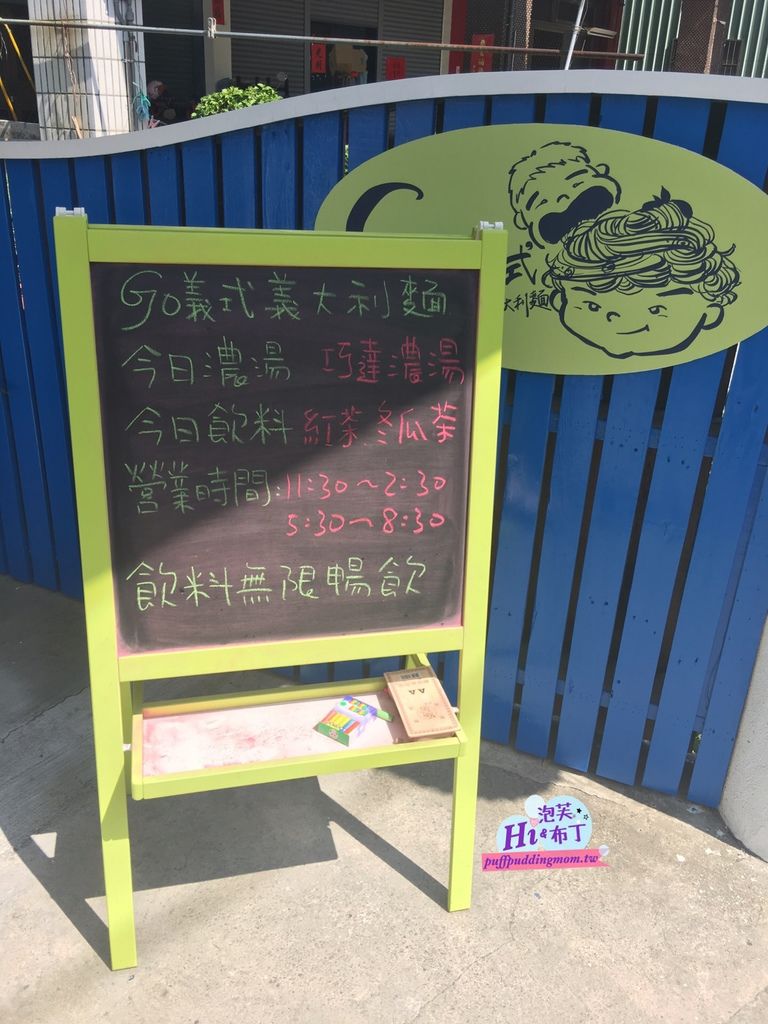 Go義式義大利麵
今日濃湯 巧達濃湯
今日飲料 紅茶、冬瓜茶
營業時間:11:30~2:30
5:30~8:30
飲料無限暢飲
式
大利麵
泡芙
Hi&布丁
puffpuddingmom.tw